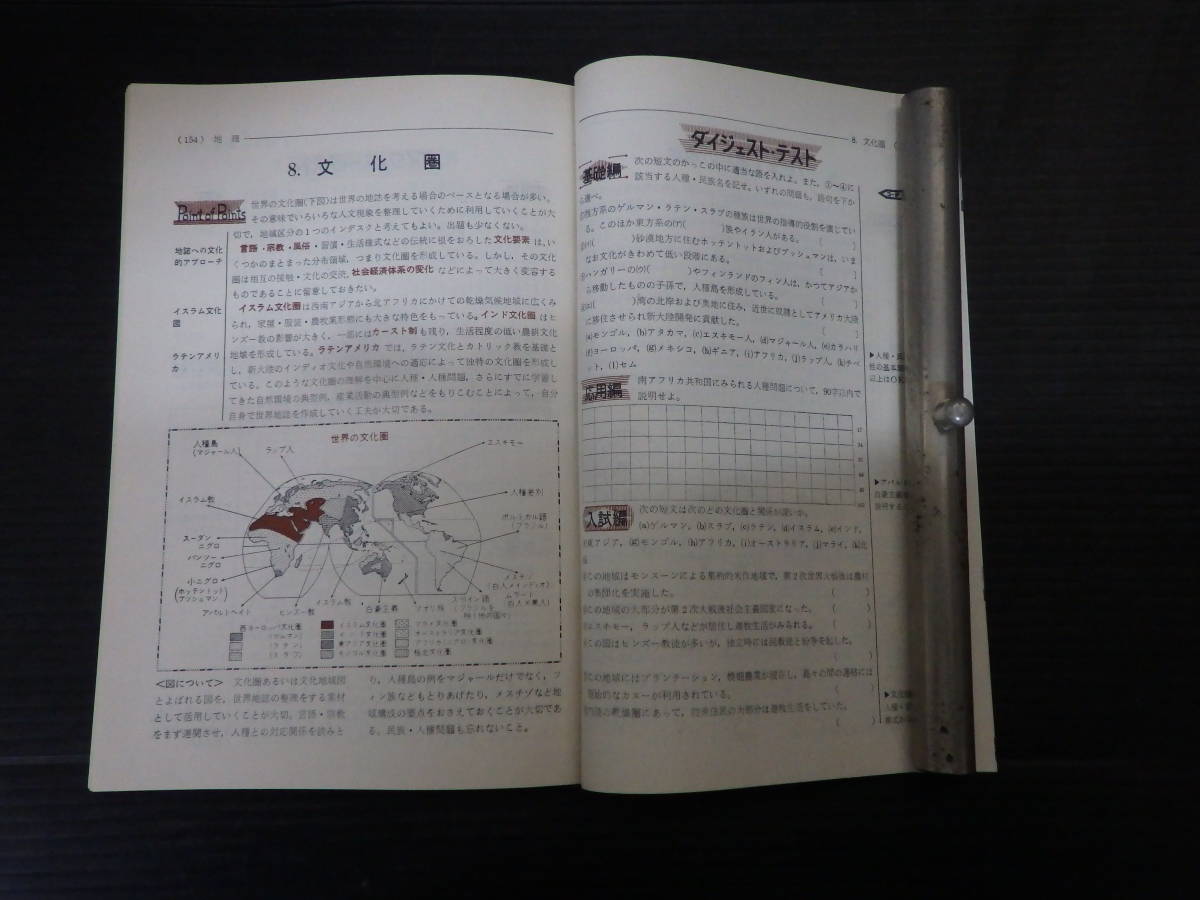 (154) 地 理
8. 文 化 圏
Point of Points
世界の文化圏(下図)は世界の地誌を考える場合のベースとなる場合が多い。
その意味でいろいろな人文現象を整理していくために利用していくことが大
切で、地域区分の1つのインデスクと考えてもよい。出題も少なくない。
地誌への文化
的アプローチ
言語・宗教・風俗・習慣・生活様式などの伝統に根をおろした文化要素は、い
くつかのまとまった分布領域、つまり文化圏を形成している。しかし、その文化
圏は相互の接触・文化の交流、社会経済体系の変化などによって大きく変容する
ものであることに留意しておきたい。
イスラム文化
圏
イスラム文化圏は西南アジアから北アフリカにかけての乾燥気候地域に広くみ
られ、家屋・服装・農牧業形態にも大きな特色をもっている。インド文化圏はヒ
ンズー教の影響が大きく、一部にはカースト制も残り、生活程度の低い農耕文化
地域を形成している。ラテンアメリカでは、ラテン文化とカトリック教を基礎と
ラテンアメリ
カ
し、新大陸のインディオ文化や自然環境への適応によって独特の文化圏を形成し
ている。このような文化圏の理解を中心に人種・人種問題、さらにすでに学習し
てきた自然環境の典型例、産業活動の典型例などをもりこむことによって、自分
自身で世界地誌を作成していく工夫が大切である。
世界の文化圏
人種島
(マジャール人)
ラップ人
エスキモー
イスラム教
人種差別
ポルトガル語
(ブラジル)
スーダン
ニグロ
バンツー
ニグロ
小ニグロ
(ホッテントット
ブッシュマン)
アパルトヘイト
ヒンズー教
イスラム教
白豪主義
マオリ族
スペイン語
(ブラジルを
除く他の国々)
メスチソ
(白人×インディオ)
ムラート
(白人×黒人)
西ヨーロッパ文化圏
(ゲルマン)
(ラテン)
(スラブ)
イスラム文化圏
インド文化圏
東アジア文化圏
モンゴル文化圏
オーストラリア文化圏
極北文化圏
<図について> 文化圏あるいは文化地域図
とよばれる図を、世界地誌の整理をする素材
として活用していくことが大切。言語・宗教
をまず連関させ、人種との対応関係を読みと
り、人種島の例をマジャールだけでなく、フ
ィン族などもとりあげたり、メスチゾなど地
域構成の要点をおさえておくことが大切であ
る。民族・人種問題も忘れないこと。
8. 文化圏
ダイジェスト・テスト
基礎編
次の短文のかっこの中に適当な語を入れよ。また、①〜④に
該当する人種・民族名を記せ。いずれの問題も、語句を下か
ら選べ。
西方系のゲルマン・ラテン・スラブの種族は世界の指導的役割を演じてい
る。このほか東方系の(ア)( )族やイラン人がある。 ( )
( )砂漠地方に住むホッテントットおよびブッシュマンは、いま
なお文化がきわめて低い段階にある。 ( )
ハンガリーの(ウ)( )やフィンランドのフィン人は、かつてアジアか
ら移動したもの子孫で、人種島を形成している。 ( )
( )湾の北岸および奥地に住み、近世に奴隷としてアメリカ大陸
に移住させられ新大陸開発に貢献した。 ( )
(a)モンゴル、(b)アタカマ、(c)エスキモー人、(d)マジャール人、(e)カラハリ
(f)ヨーロッパ、(g)メキシコ、(h)ギニア、(i)アフリカ、(j)ラップ人、(k)チベ
ット、(l)セム
応用編
南アフリカ共和国にみられる人種問題について、90字以内で
説明せよ。
入試編
次の短文は次のどの文化圏と関係が深いか。
(a)ゲルマン、(b)スラブ、(c)ラテン、(d)イスラム、(e)インド、
東アジア、(g)モンゴル、(h)アフリカ、(i)オーストラリア、(j)マライ、(k)北
この地域はモンスーンによる集約的米作地域で、第2次世界大戦後は農村
の集団化を実施した。 ( )
この地域の大部分が第2次大戦後社会主義国家になった。 ( )
エスキモー、ラップ人などが居住し遊牧生活がみられる。 ( )
この国はヒンズー教徒が多いが、独立時には回教徒と紛争を起した。
( )
この地域にはプランテーション、
が利用されている。 ( )
の乾燥圏にあって、
の大部分は遊牧生活をしていた。
( )